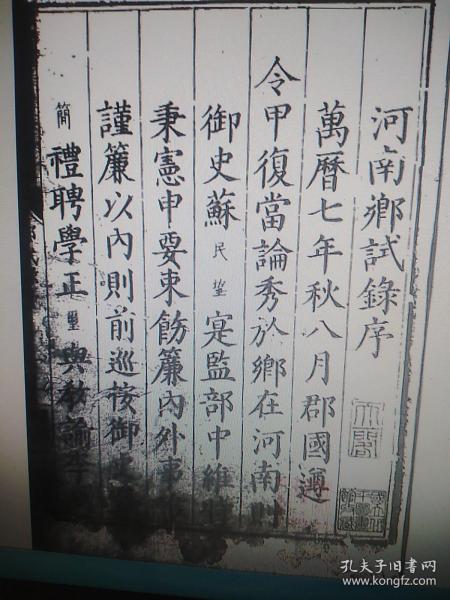 河南鄉試錄序
萬曆七年秋八月郡國遵
令甲復當論秀於鄉在河南則
御史蘇民望寔監部中維時
秉憲申要束飭簾內外事
謹簾以內則前巡按御史
簡禮聘學正 與教諭李
孔夫子旧书网
www.kongfz.com